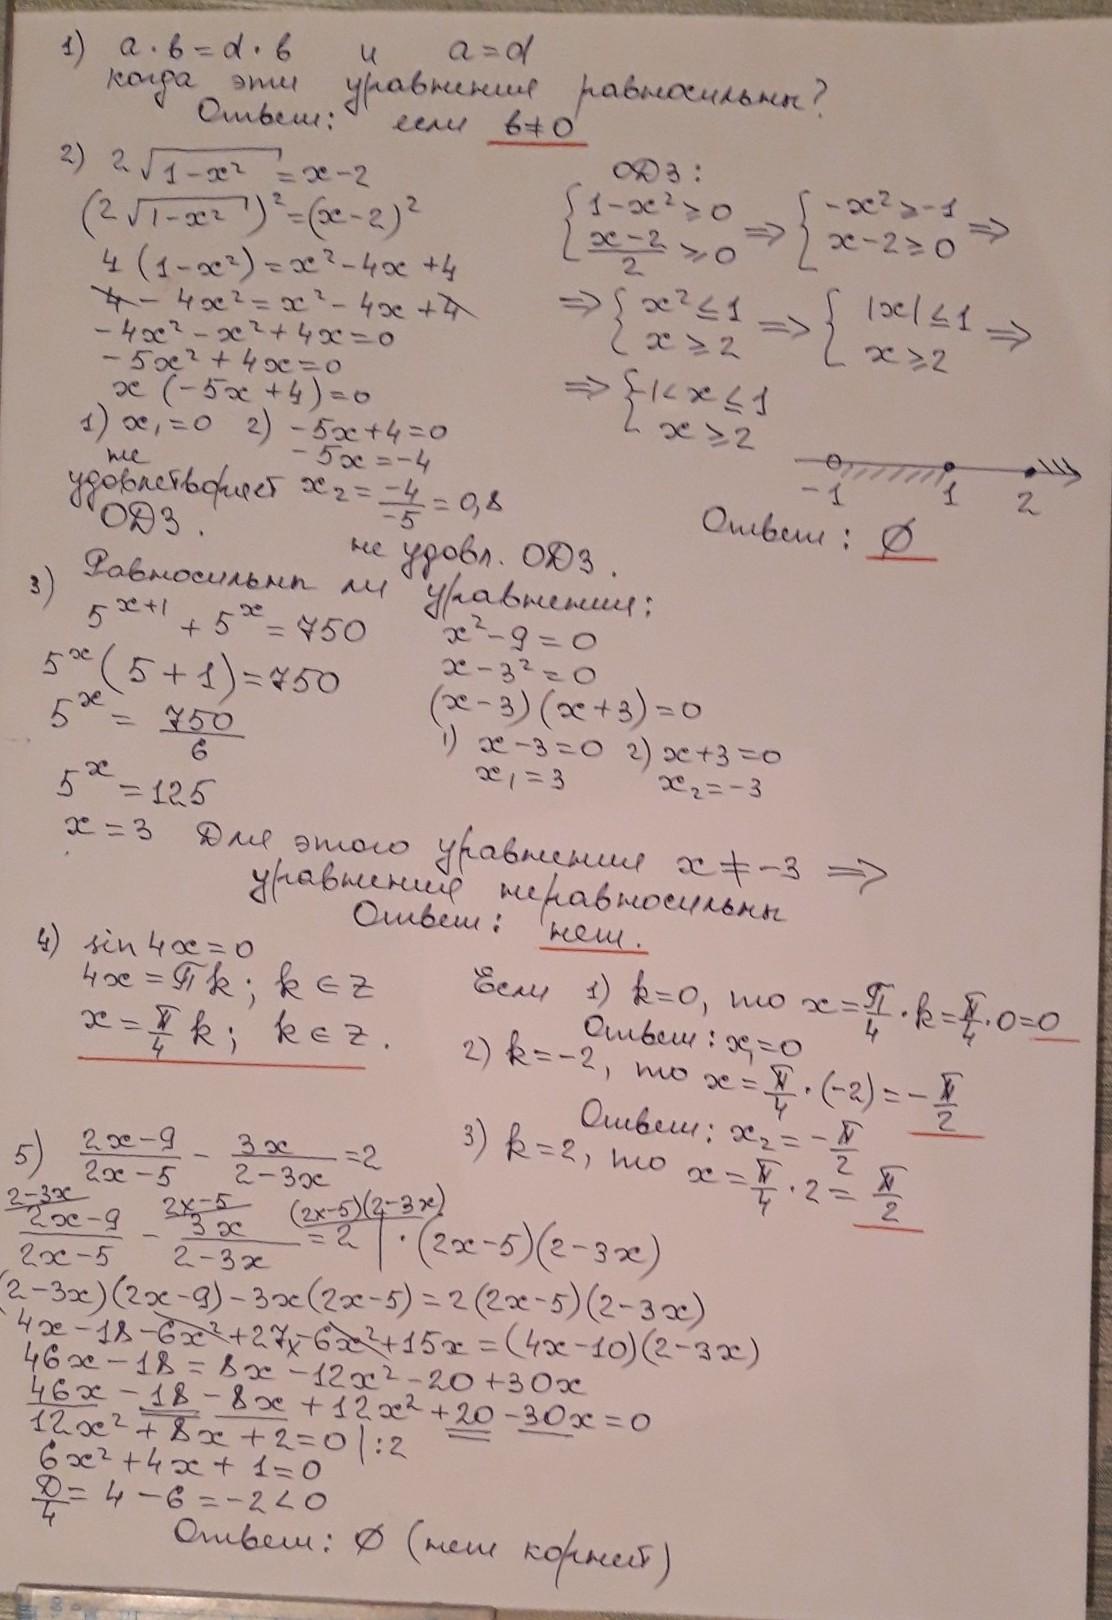 1) a · b = d · b и a = d
когда эти уравнения равносильны?
Ответ: если b ≠ 0
2) 2√(1-x²) = x-2
(2√(1-x²))² = (x-2)²
4(1-x²) = x²-4x+4
4 - 4x² = x² - 4x + 4
-4x² - x² + 4x = 0
-5x² + 4x = 0
x(-5x+4) = 0
1) x₁ = 0 2) -5x+4 = 0
не -5x = -4
удовлетворяет x₂ = -4/-5 = 0,8
ОДЗ. не удовл. ОДЗ.
ОДЗ:
{ 1-x² ≥ 0 ⇒ { -x² ≥ -1 ⇒
(x-2)/2 ≥ 0 x-2 ≥ 0
⇒ { x² ≤ 1 ⇒ { |x| ≤ 1 ⇒
x ≥ 2 x ≥ 2
⇒ { 1 < x ≤ 1
x ≥ 2
-1 1 2
Ответ: ∅
3) Равносильны ли уравнения:
5^(x+1) + 5^x = 750
5^x(5+1) = 750
5^x = 750/6
5^x = 125
x = 3
x² - 9 = 0
x - 3² = 0
(x-3)(x+3) = 0
1) x-3 = 0 2) x+3 = 0
x₁ = 3 x₂ = -3
Для этого уравнения x ≠ -3 ⇒
уравнения неравносильны
Ответ: нет.
4) sin 4x = 0
4x = πk; k ∈ z
x = π/4 k; k ∈ z.
Если 1) k=0, то x = π/4 · k = π/4 · 0 = 0
Ответ: x₁ = 0
2) k = -2, то x = π/4 · (-2) = -π/2
Ответ: x₂ = -π/2
3) k = 2, то x = π/4 · 2 = π/2
5) (2x-9)/(2x-5) - 3x/(2-3x) = 2
2-3x 2x-5 (2x-5)(2-3x)
(2x-9)/(2x-5) - 3x/(2-3x) = 2 | · (2x-5)(2-3x)
(2-3x)(2x-9) - 3x(2x-5) = 2(2x-5)(2-3x)
4x - 18 - 6x² + 27x - 6x² + 15x = (4x-10)(2-3x)
46x - 18 = 8x - 12x² - 20 + 30x
46x - 18 - 8x + 12x² + 20 - 30x = 0
12x² + 8x + 2 = 0 | :2
6x² + 4x + 1 = 0
D/4 = 4 - 6 = -2 < 0
Ответ: ∅ (нет корней)